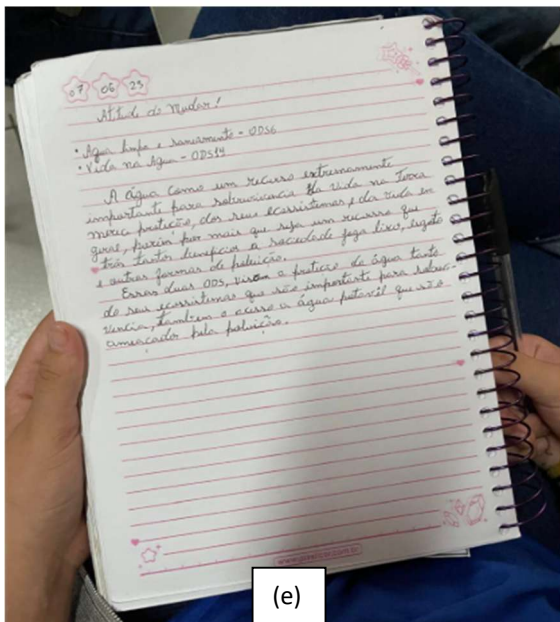 07 06 23
Atitude do Mudar!
• Água limpa e saneamento - ODS6
• Vida na Água - ODS14
A água como um recurso extremamente
importante para sobrevivencia da vida na Terra
mereci proteção, dos seus ecossistemas e da vida em
geral, porém por mais que seja um recurso que
trás tantos beneficios a sociedade joga lixo, esgoto
e outras formas de poluição.
Essas duas ODS, visam a proteção da água tanto
do seu ecossistemas que são importante para sobrevi-
vencia, também o acesso a água potavil que são
ameaçados pela poluição.
(e)